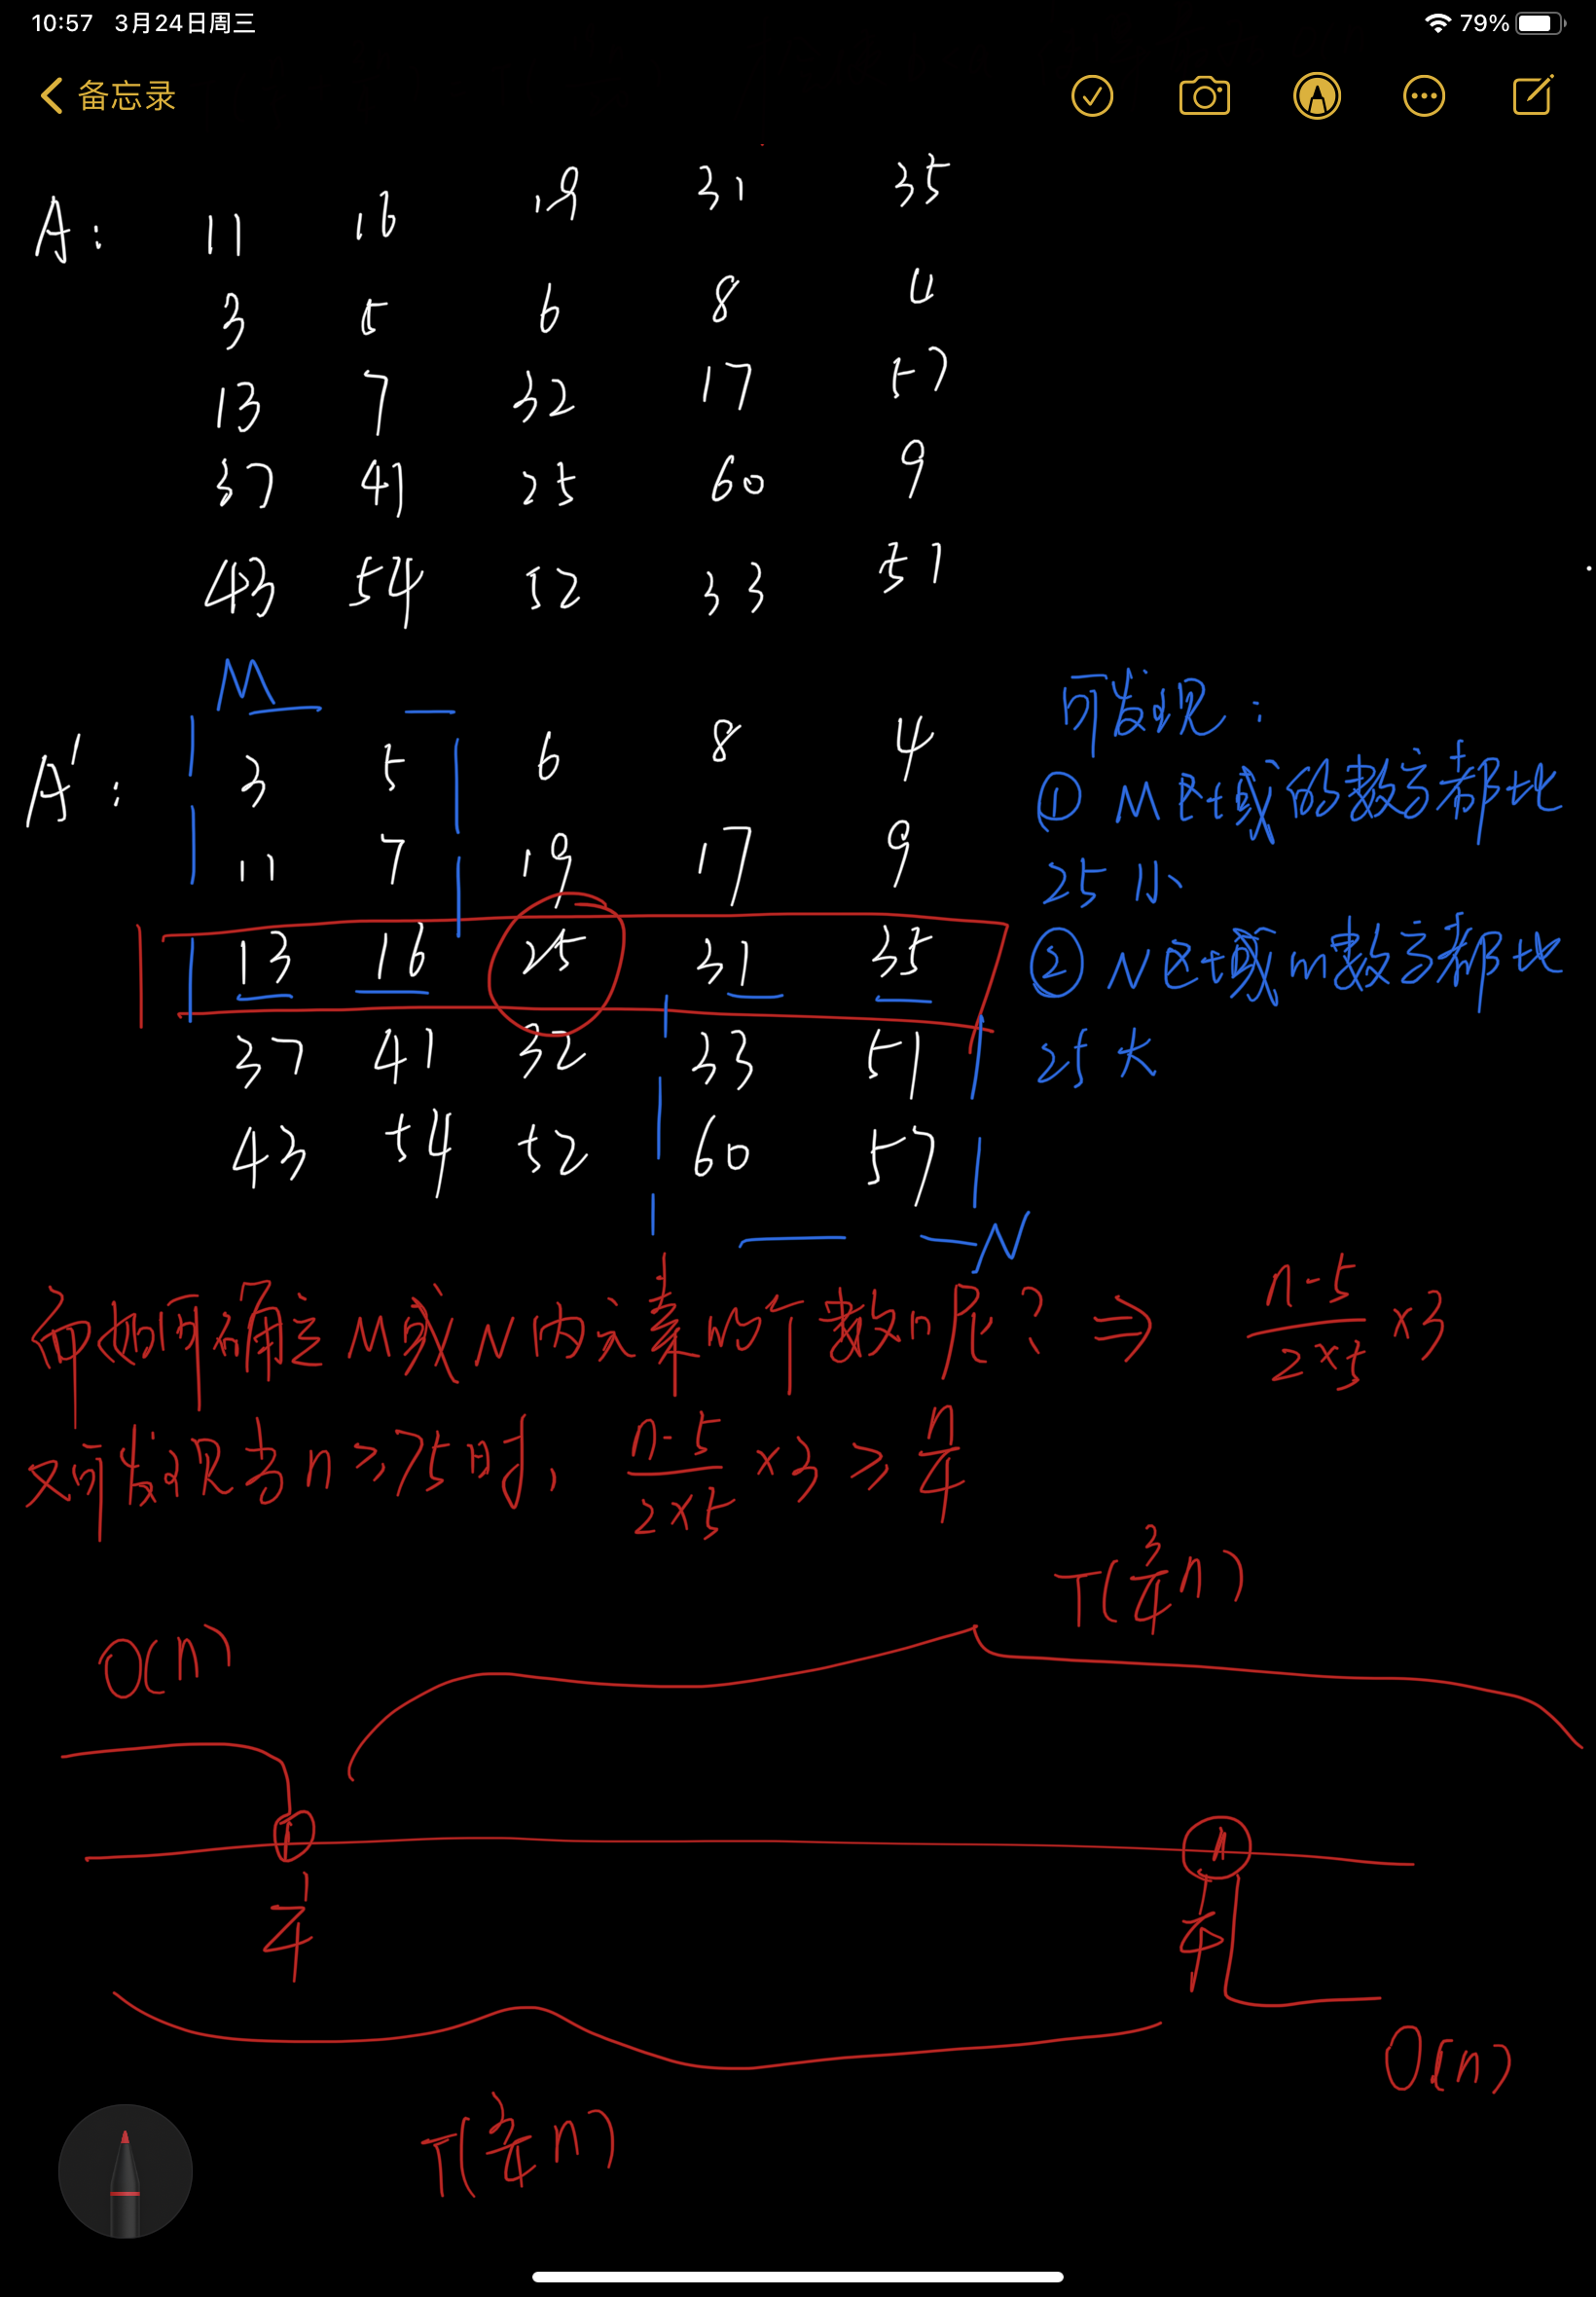 10:57 3月24日周三 79%
备忘录
A: 11 16 19 31 35
3 5 6 8 4
13 7 32 17 57
37 41 25 60 9
43 54 52 33 51
M
A': 3 5 6 8 4
11 7 19 17 9
13 16 25 31 35
37 41 32 33 51
43 54 52 60 57
N
可发现:
① M区域的数字都比
25小
② N区域的数字都比
25大
那如何确定M或N内元素的个数呢? ⇒ (n-5)/(2×5) ×3
又可发现当n≥75时, (n-5)/(2×5) ×3 ≥ n/4
T(3/4 n)
O(n)
1/4
O(n)
T(3/4 n)